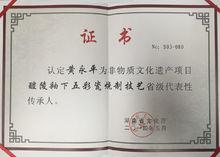 证书
No: S03-080
认定黄永平为非物质文化遗产项目
醴陵釉下五彩瓷烧制技艺省级代表性
传承人。
湖南省文化厅
二〇一四年五月